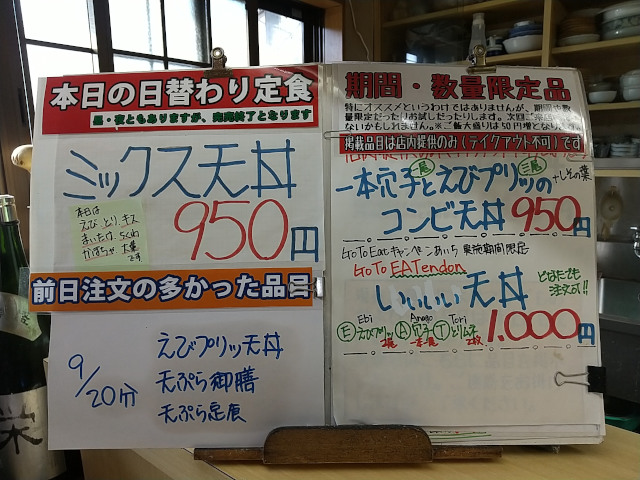 本日の日替わり定食
昼・夜ともありますが、完売終了となります
ミックス天丼
本日は
えび とり キス
まいたけ ちくわ
かぼちゃ 大葉
です
950円
前日注文の多かった品目
9/20分
えびプリッ天丼
天ぷら御膳
天ぷら定食
期間・数量限定品
特にオススメというわけではありませんが、期間や数
量限定だったりお試しだったりします。次回ご来店
ないかもしれません。※ご飯大盛りは50円増となり
掲載品目は店内提供のみ(テイクアウト不可)です
一尾 三尾
一本穴子とえびプリッの
+しその葉
コンビ天丼 950円
GoToEatキャンペーンあいち 実施期間限定
GoTo EATendon
いいいい天丼
どなたでも
注文OK!!
Ebi Anago Tori
Eえびプリッ A穴子 Tとりムネ
2尾 一本 2枚
1.000円